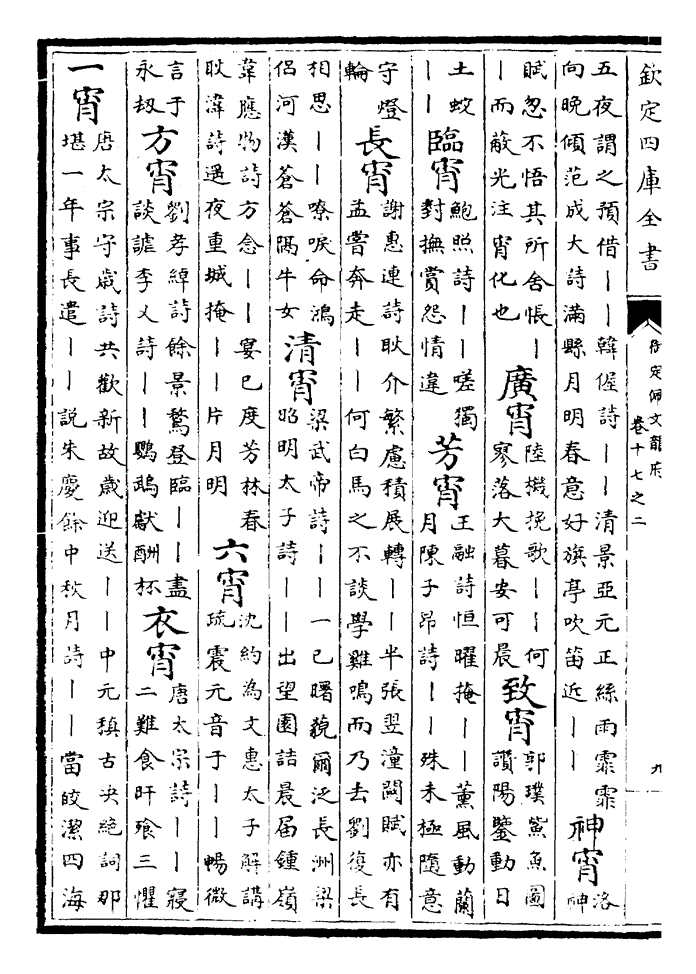 欽定四庫全書
御定佩文韻府
卷十七之二
九
五夜謂之預借｜｜韓偓詩｜｜清景亞元正絲雨霏霏
向晚傾范成大詩滿縣月明春意好旗亭吹笛近｜｜
神宵
洛
神
賦忽不悟其所舍悵｜
｜而蔽光注宵化也
廣宵
陸機挽歌｜｜何
寥落大暮安可晨
致宵
郭璞鯊魚圖
讚陽鑒動日
土蚊
｜｜
臨宵
鮑照詩｜｜嗟獨
對撫賞怨情違
芳宵
王融詩恒曜掩｜｜薰風動蘭
月陳子昂詩｜｜殊未極隨意
守燈
輪
長宵
謝惠連詩耿介繁慮積展轉｜｜半張翌潼關賦亦有
孟嘗奔走｜｜何白馬之不談學雞鳴而乃去劉復長
相思｜｜嘹唳命鴻
侶河漢蒼蒼隔牛女
清宵
梁武帝詩｜｜一已曙藐爾泛長洲梁
昭明太子詩｜｜出望園詰晨屆鍾嶺
韋應物詩方念｜｜宴已度芳林春
耿湋詩遇夜重城掩｜｜片月明
六宵
沈約為文惠太子解講
疏震元音于｜｜暢微
言于
永劫
方宵
劉孝綽詩餘景騖登臨｜｜盡
談謔李乂詩｜｜鸚鵡獻酬杯
衣宵
唐太宗詩｜｜寢
二難食旰飱三懼
一宵
唐太宗守歲詩共歡新故歲迎送｜｜中元稹古決絕詞那
堪一年事長遣｜｜說朱慶餘中秋月詩｜｜當皎潔四海